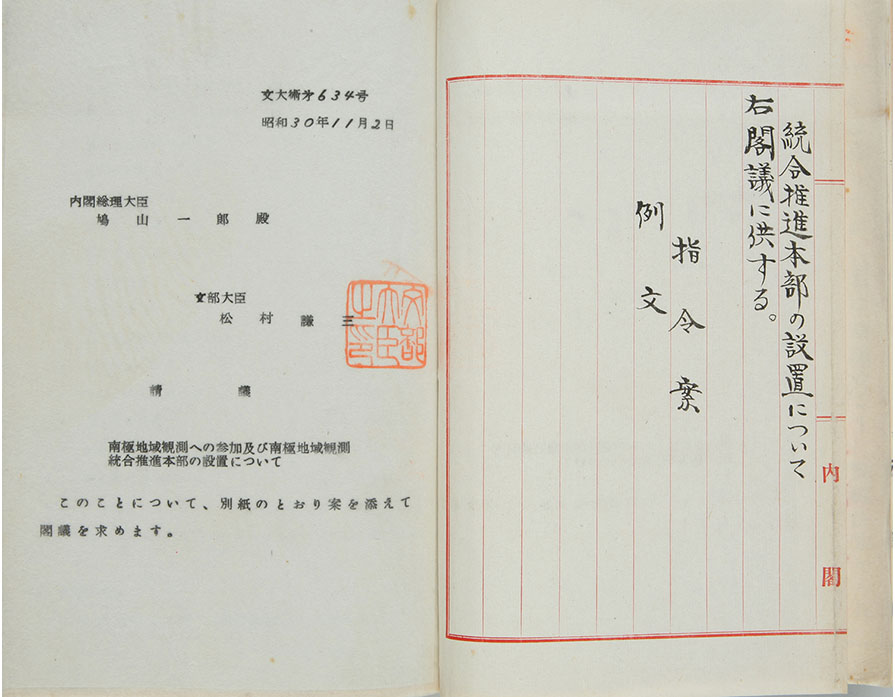 統合推進本部の設置について
右閣議に供する。
指令案
例文
内閣
文大術第634号
昭和30年11月2日
内閣総理大臣
鳩山一郎殿
文部大臣
松村謙三
文部大臣之印
請議
南極地域観測への参加及び南極地域観測
統合推進本部の設置について
このことについて、別紙のとおり案を添えて
閣議を求めます。